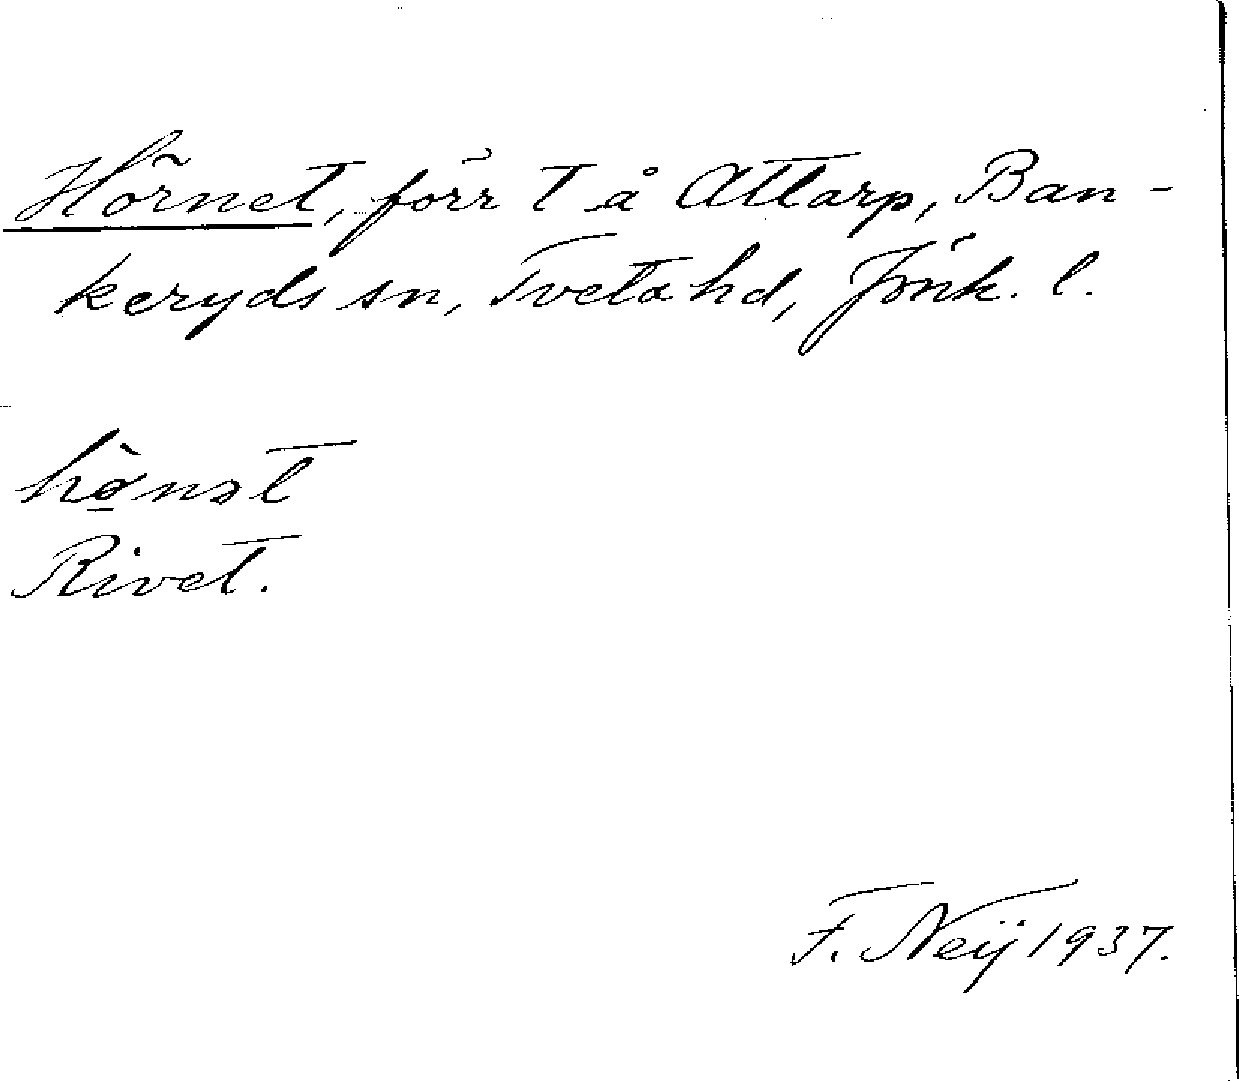 Hörnet, förr T å Attarp, Ban-
keryds sn, Tveta hd, Jönk. l.
hø̠̀nət
Rivet.
F. Neij 1937.